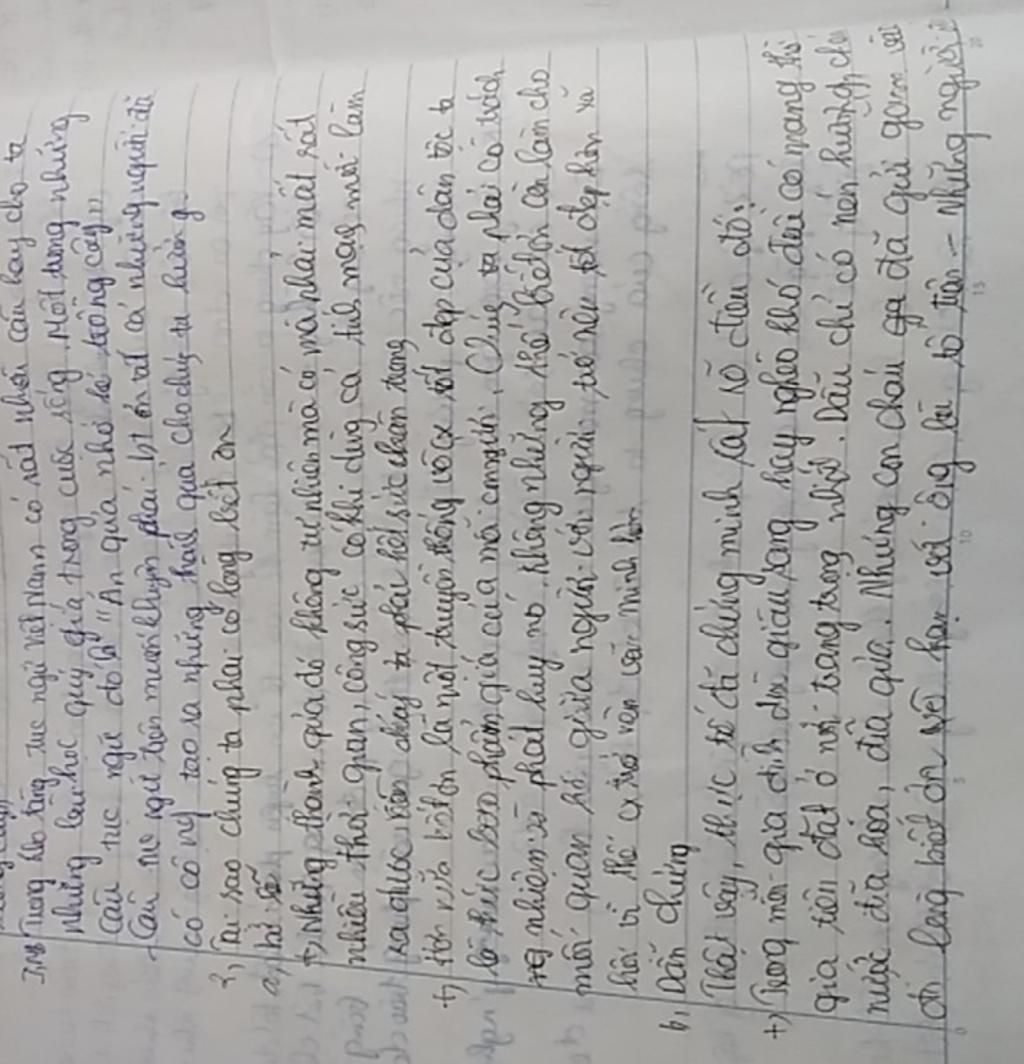 Trong kho tàng tục ngữ Việt Nam có rất nhiều câu hay cho ta
những bài học quý giá trong cuộc sống. Một trong những
câu tục ngữ đó là "Ăn quả nhớ kẻ trồng cây"
- Câu tục ngữ trên muốn khuyên phải biết ơn tất cả những người đã
có công tạo ra những thành quả cho chúng ta hưởng
2, Tại sao chúng ta phải có lòng biết ơn
a, Lí lẽ
+) Những thành quả đó không tự nhiên mà có mà phải mất rất
nhiều thời gian, công sức có khi dùng cả tính mạng mới làm
ra được nên chúng ta phải hết sức trân trọng
+) lòng biết ơn là một truyền thống tốt đẹp của dân tộc ta
là thước đo phẩm giá của mỗi con người. Chúng ta phải có trách
nhiệm phát huy nó, không những thế biết ơn còn làm cho
mối quan hệ giữa người với người trở nên tốt đẹp hơn xã
hội vì thế cũng văn minh hơn
b, Dẫn chứng
Thật vậy, thực tế đã chứng minh rất rõ điều đó:
+) Trong mỗi gia đình dù giàu sang hay nghèo khó đều có mang thờ
gia tiên đặt ở nơi trang trọng nhất. Dẫu chỉ có nén hương, chén
nước đĩa hoa, đĩa quả. Nhưng con cháu đã gửi gắm
lòng biết ơn vô hạn với ông bà tổ tiên - Những người